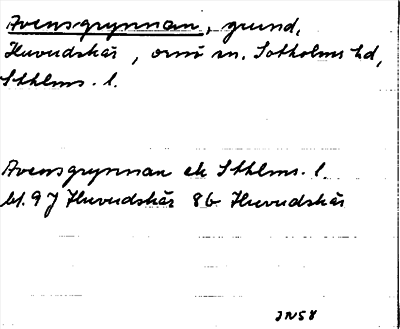 Avensgrynnan, grund,
Huvudskär, Ornö sn. Sotholms hd,
Sthlms. l.
Avensgrynnan ek Sthlms. l.
bl. 9 J Huvudskär 8b Huvudskär
JN58